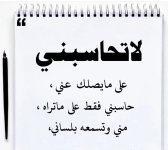 "
لاتحاسبني
على مايصلك عني ،
حاسبني فقط على ماتراه ،
مني وتسمعه بلساني،